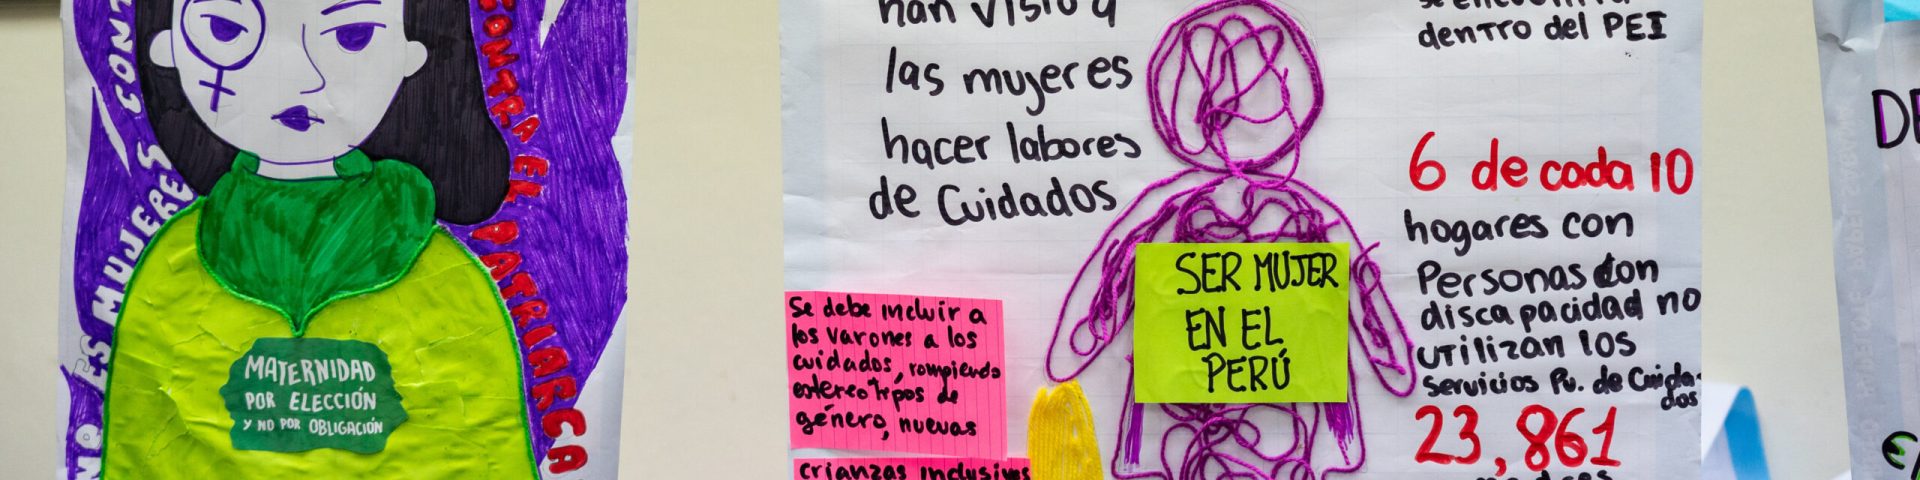 CONTRA EL PATRIARCA
NO ES MUJERES CONT
MATERNIDAD
POR ELECCIÓN
Y NO POR OBLIGACIÓN
han visto a
las mujeres
hacer labores
de Cuidados
Se debe incluir a
los varones a los
cuidados, rompiendo
estereotipos de
género, nuevas
crianzas inclusivas
SER MUJER
EN EL
PERÚ
dentro del PEI
6 de cada 10
hogares con
Personas con
discapacidad no
utilizan los
Servicios Pu. de Cuida-
dos
23,861
DE